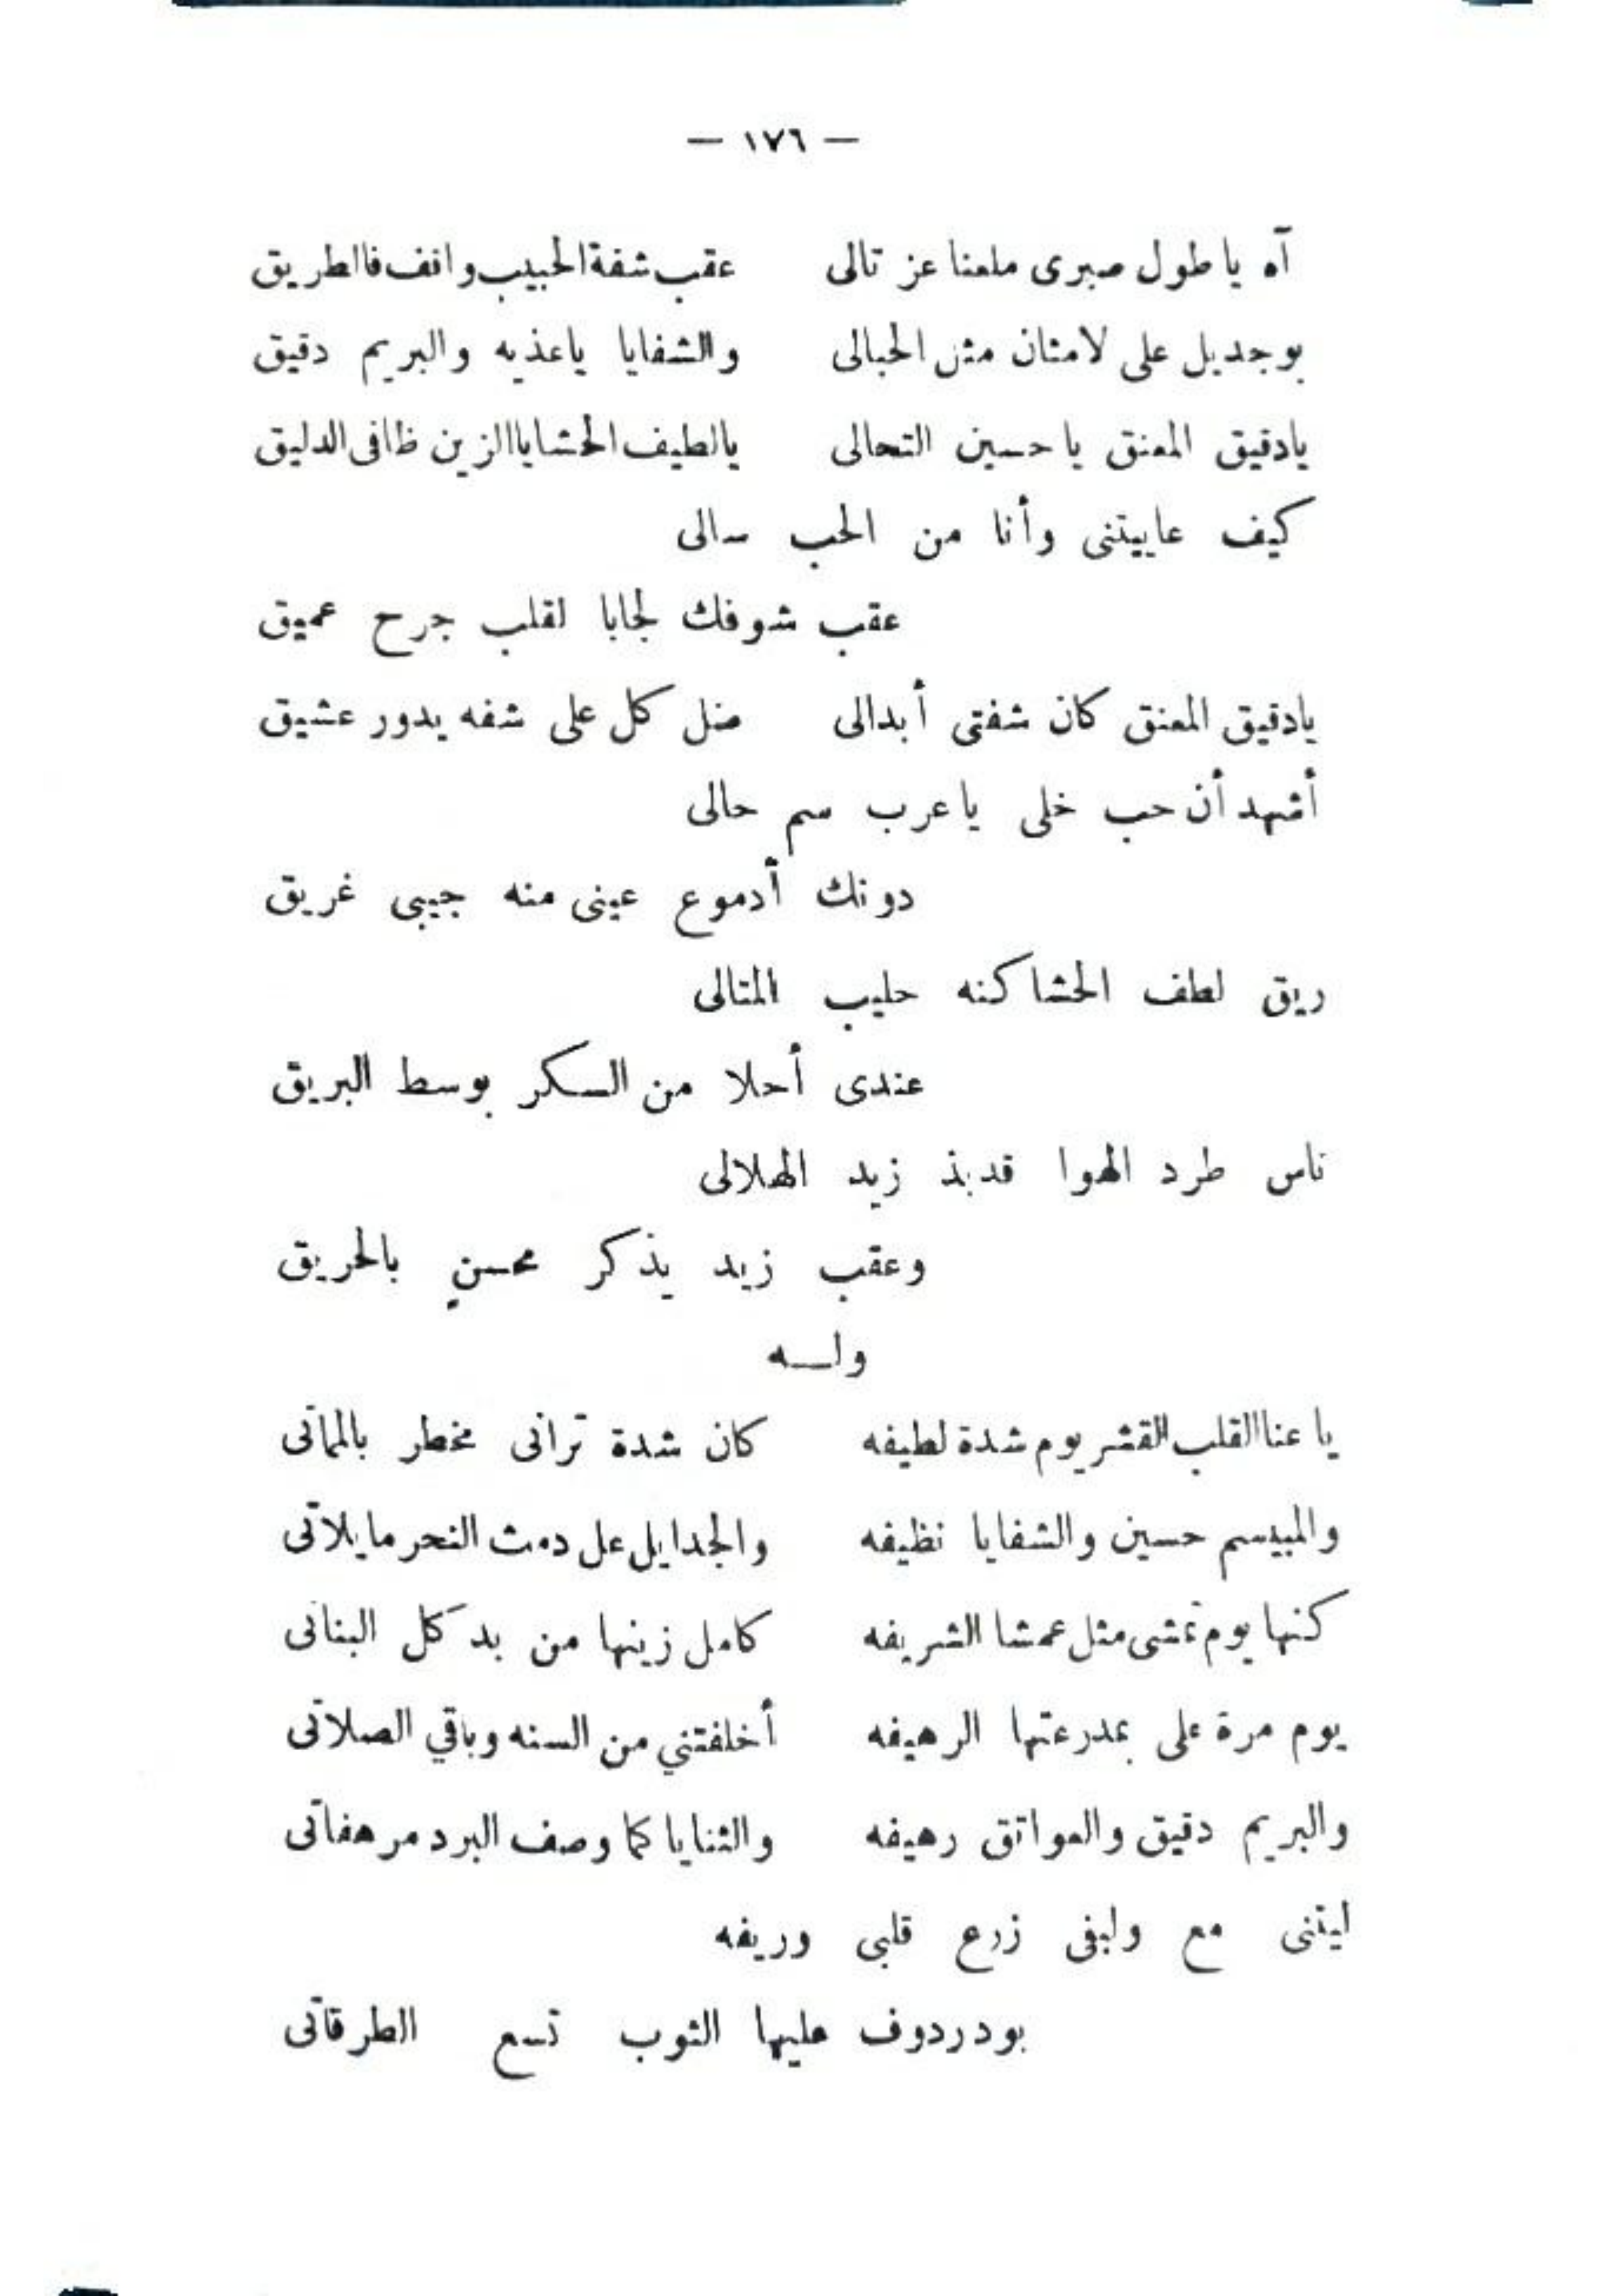 — ١٧٦ —
آه ياطول صبرى ملعنا عز تالى عقب شفة الحبيب واقف فالطريق
بوجديل على لامتان مثل الحبالى والشفايا ياعذيه والبريم دقيق
يادقيق المعنق ياحسين التحالى يالطيف الحشايا الزين ظافى الدليق
كيف عاييتنى وأنا من الحب سالى
عقب شوفك لجابا لقلب جرح عميق
يادقيق المعنق كان شفتى أبدالى ضل كل على شفه يدور عشيق
أشهد أن حب خلى ياعرب سم حالى
دونك أدموع عينى منه جيبى غريق
ريق لطف الحشا كنه حليب المتالى
عندى أحلا من السكر بوسط البريق
ناس طرد الهوا قدبذ زيد الهلالى
وعقب زيد يذكر محسن بالحريق
ولـــه
يا عنا القلب القشر يوم شدة لطيفه كان شدة ترانى مخطر بالماتى
والمبيسم حسين والشفايا نظيفه والجدايل عل دمث النحر مايلاتى
كنها يوم تمشى مثل عمشا الشريفه كامل زينها من بد كل البناتى
يوم مرة على بمدرعتها الرهيفه أخلفتني من السنه وباقي الصلاتى
والبريم دقيق والعواتق رهيفه والثنايا كما وصف البرد مرهفاتى
ليتنى مع وليفى زرع قلبى وريفه
بودردوف عليها الثوب تسع الطرقاتى